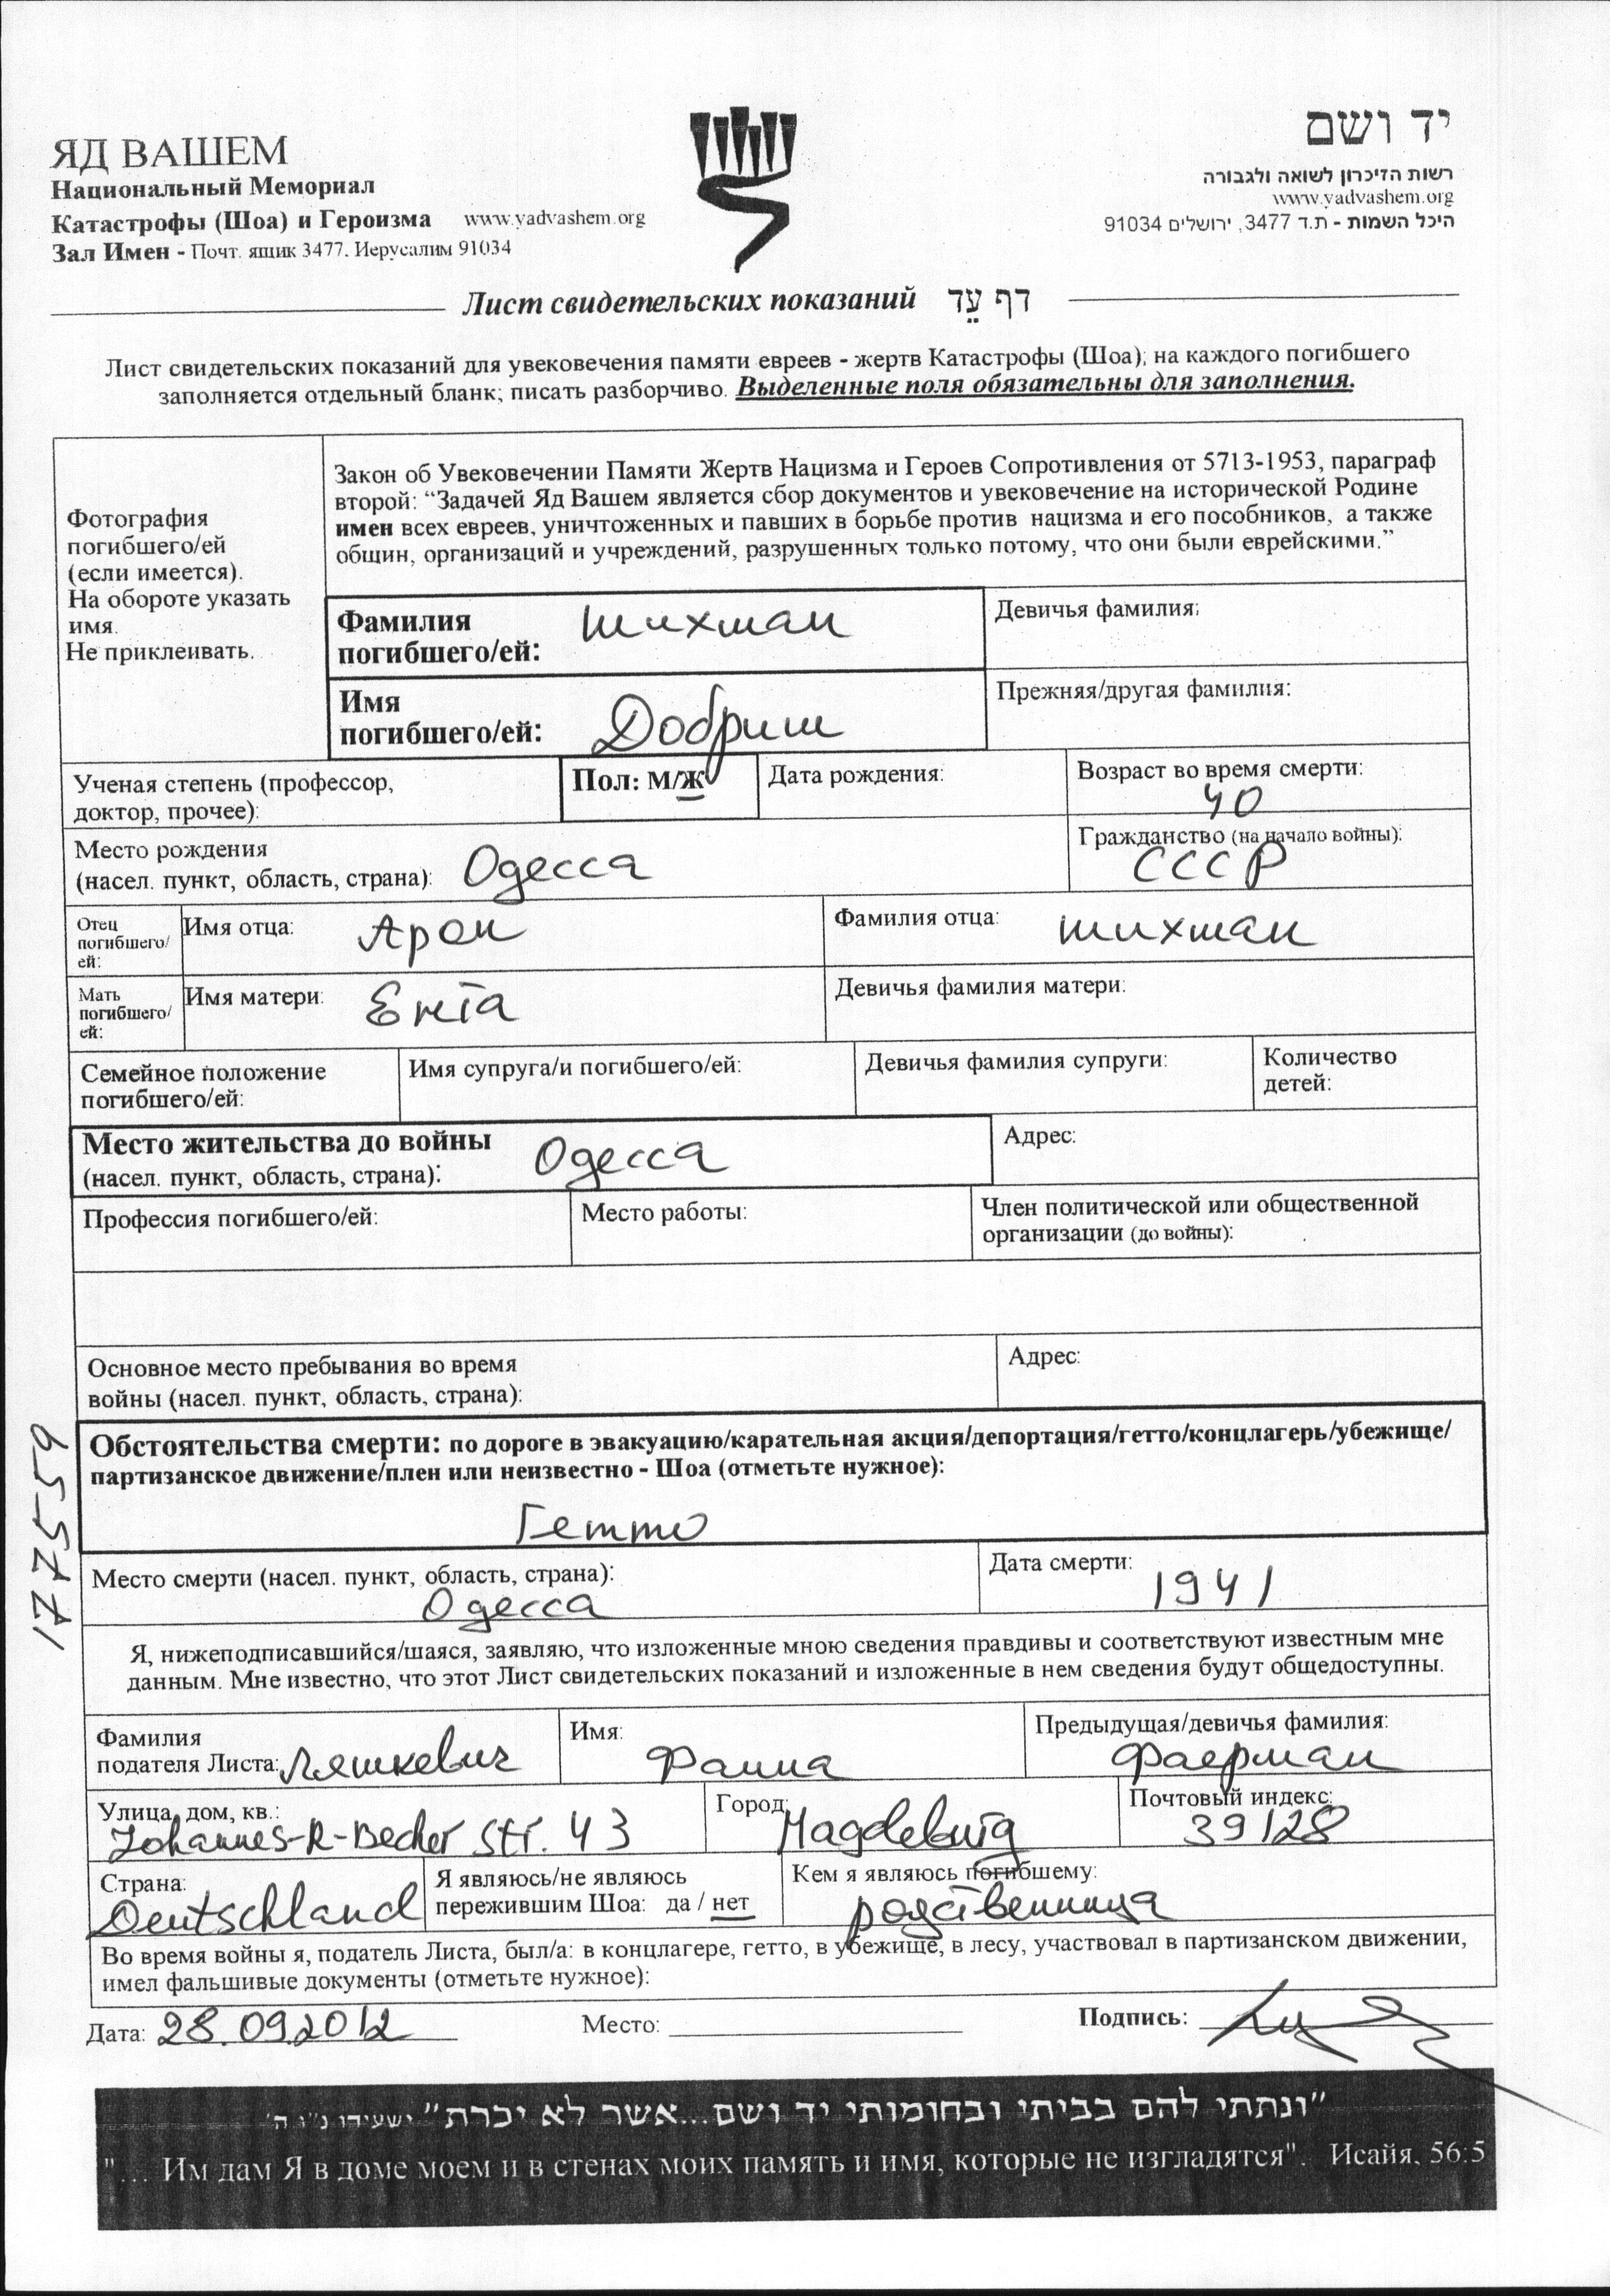 ЯД ВАШЕМ
Национальный Мемориал
Катастрофы (Шоа) и Героизма www.yadvashem.org
Зал Имен - Почт. ящик 3477, Иерусалим 91034
יד ושם
רשות הזיכרון לשואה ולגבורה
www.yadvashem.org
היכל השמות - ת.ד 3477, ירושלים 91034
Лист свидетельских показаний דף עֵד
Лист свидетельских показаний для увековечения памяти евреев - жертв Катастрофы (Шоа); на каждого погибшего
заполняется отдельный бланк; писать разборчиво. Выделенные поля обязательны для заполнения.
Фотография
погибшего/ей
(если имеется).
На обороте указать
имя.
Не приклеивать.
Закон об Увековечении Памяти Жертв Нацизма и Героев Сопротивления от 5713-1953, параграф
второй: “Задачей Яд Вашем является сбор документов и увековечение на исторической Родине
имен всех евреев, уничтоженных и павших в борьбе против нацизма и его пособников, а также
общин, организаций и учреждений, разрушенных только потому, что они были еврейскими.”
Фамилия
погибшего/ей: Шихман
Девичья фамилия:
Имя
погибшего/ей: Добриш
Прежняя/другая фамилия:
Ученая степень (профессор,
доктор, прочее):
Пол: М/Ж
Дата рождения:
Возраст во время смерти:
40
Место рождения
(насел. пункт, область, страна): Одесса
Гражданство (на начало войны):
СССР
Отец
погибшего/
ей:
Имя отца: Арон
Фамилия отца: Шихман
Мать
погибшего/
ей:
Имя матери: Ента
Девичья фамилия матери:
Семейное положение
погибшего/ей:
Имя супруга/и погибшего/ей:
Девичья фамилия супруги:
Количество
детей:
Место жительства до войны
(насел. пункт, область, страна): Одесса
Адрес:
Профессия погибшего/ей:
Место работы:
Член политической или общественной
организации (до войны):
Основное место пребывания во время
войны (насел. пункт, область, страна):
Адрес:
Обстоятельства смерти: по дороге в эвакуацию/карательная акция/депортация/гетто/концлагерь/убежище/
партизанское движение/плен или неизвестно - Шоа (отметьте нужное):
Гетто
177559
Место смерти (насел. пункт, область, страна):
Одесса
Дата смерти:
1941
Я, нижеподписавшийся/шаяся, заявляю, что изложенные мною сведения правдивы и соответствуют известным мне
данным. Мне известно, что этот Лист свидетельских показаний и изложенные в нем сведения будут общедоступны.
Фамилия
подателя Листа: Ляшкевич
Имя:
Фаина
Предыдущая/девичья фамилия:
Фаерман
Улица, дом, кв.:
Johannes-R-Becher Str. 43
Город:
Magdeburg
Почтовый индекс:
39128
Страна:
Deutschland
Я являюсь/не являюсь
пережившим Шоа: да / нет
Кем я являюсь погибшему:
родственница
Во время войны я, податель Листа, был/а: в концлагере, гетто, в убежище, в лесу, участвовал в партизанском движении,
имел фальшивые документы (отметьте нужное):
Дата: 28.09.2012 Место: Подпись:
"ונתתי להם בביתי ובחומותי יד ושם...אשר לא יכרת" ישעיהו נ"ו ה'
"... Им дам Я в доме моем и в стенах моих память и имя, которые не изгладятся". Исайя, 56:5